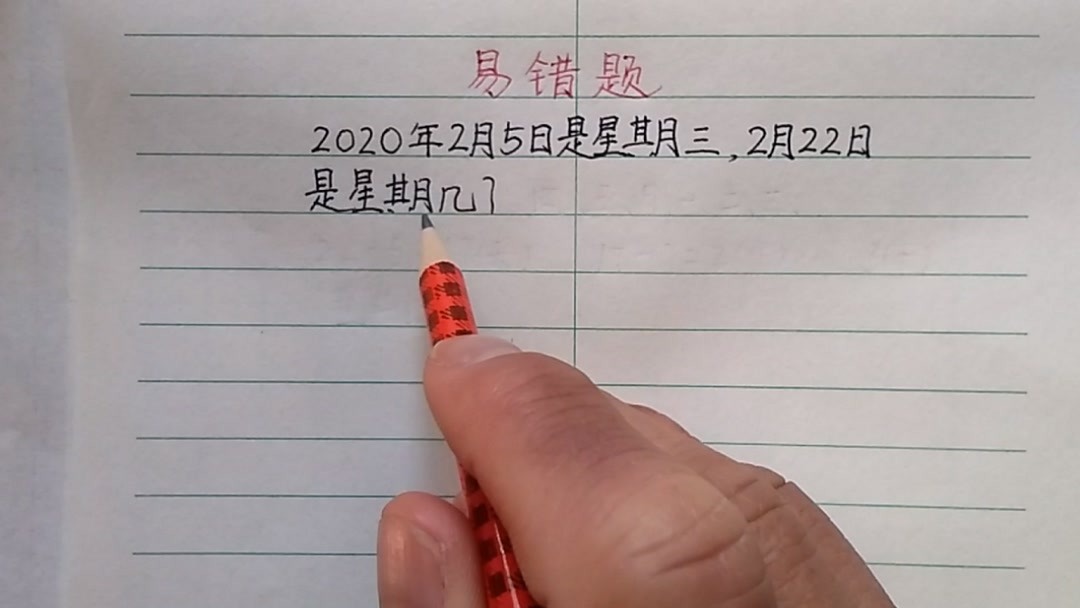 易错题
2020年2月5日是星期三,2月22日
是星期几?